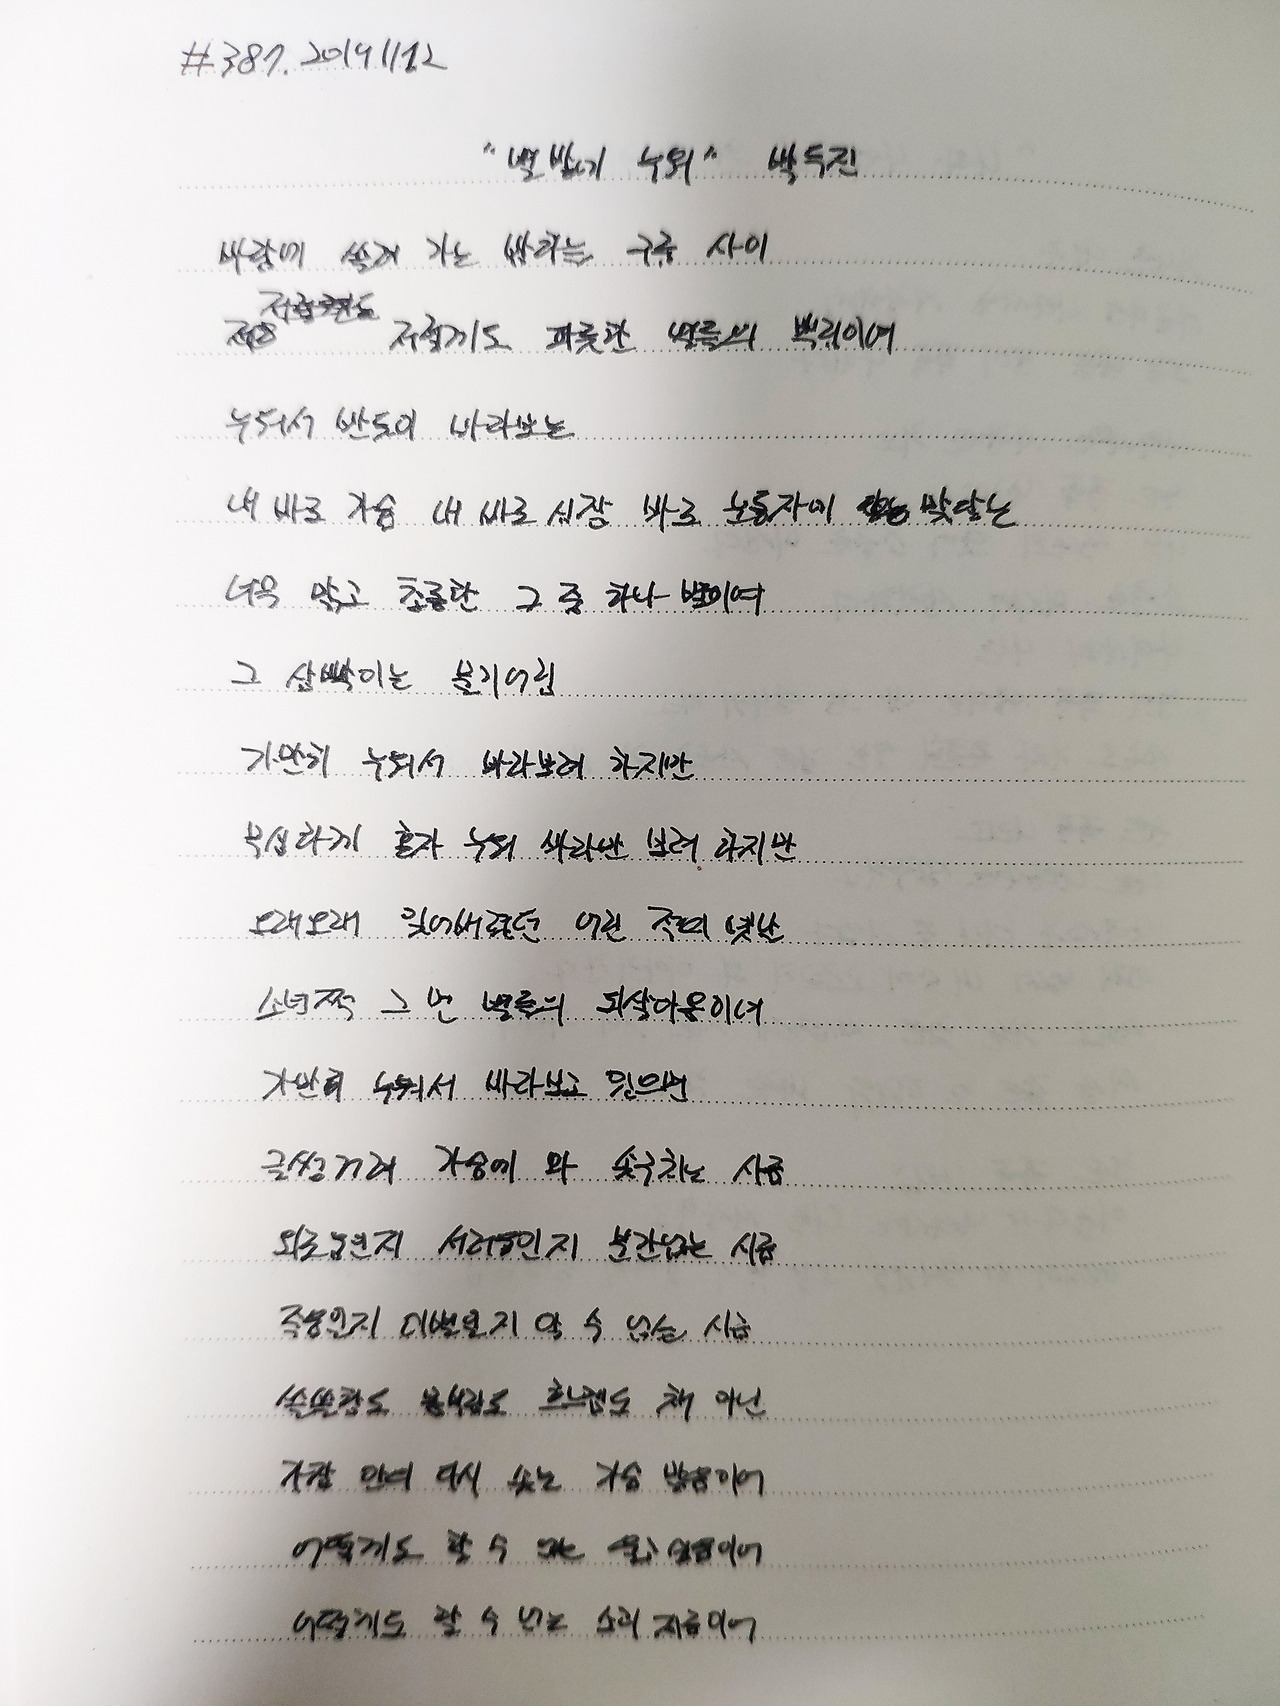 #387. 20191112
"별밭에 누워" 박두진
바람에 쓸려 가는 밤하늘 구름 사이
저렇게도 파릇한 별들의 뿌림이여
누워서 반듯이 바라보는
내 바로 가슴 내 바로 심장 바로 눈동자에 맞닿는
너무 맑고 초롱한 그 중 하나 별이여
그 삼빡이는 물기어림
가만히 누워서 바라보려 하지만
무심하게 혼자 누워 바라만 보려 하지만
오래오래 잊어버렸던 어린 적의 옛날
소년쩍 그 먼 별들의 되살아옴이여
가만히 누워서 바라보고 있으면
글썽거려 가슴에 와 솟구치는 시름
외로움인지 서러움인지 분간없는 시름
죽음인지 이별인지 알 수 없는 시름
쓸쓸함도 몸부림도 흐느낌도 채 아닌
가장 안의 다시 솟는 가슴 맑음이어
어떻게도 할 수 없는 울고 싶음이어
어떻게도 할 수 없는 소리 지름이어